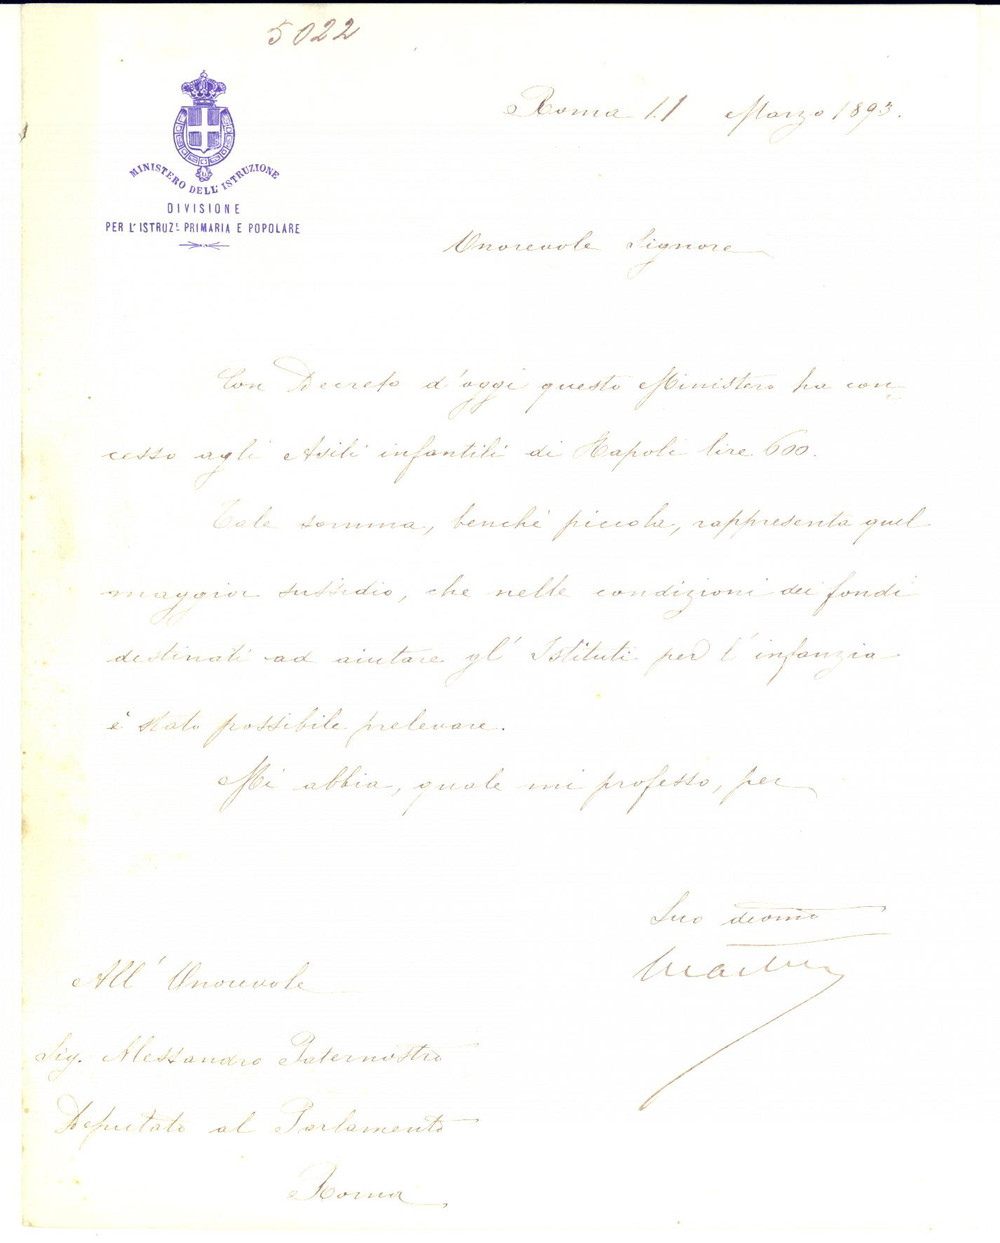 5022
MINISTERO DELL'ISTRUZIONE
DIVISIONE
PER L'ISTRUZ.E PRIMARIA E POPOLARE
Roma 11 Marzo 1893.
Onorevole Signore
Con Decreto d'oggi questo Ministero ha con-
cesso agli Asili infantili di Napoli lire 600.
Tale somma, benchè piccola, rappresenta quel
maggior sussidio, che nelle condizioni dei fondi
destinati ad aiutare gl'Istituti per l'infanzia
è stato possibile prelevare.
Mi abbia, quale mi professo, per
Suo devmo
Martini
All'Onorevole
Sig. Alessandro Paternostro
Deputato al Parlamento
Roma